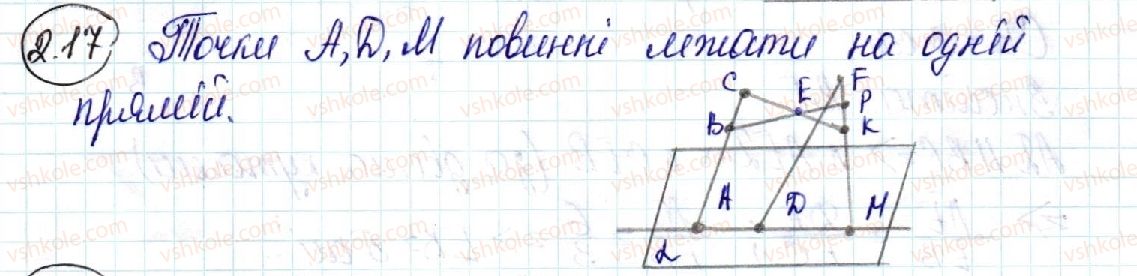 2.17 Точки А, D, М повинні лежати на одній
прямій.
C E F
P
B K
A D M
α